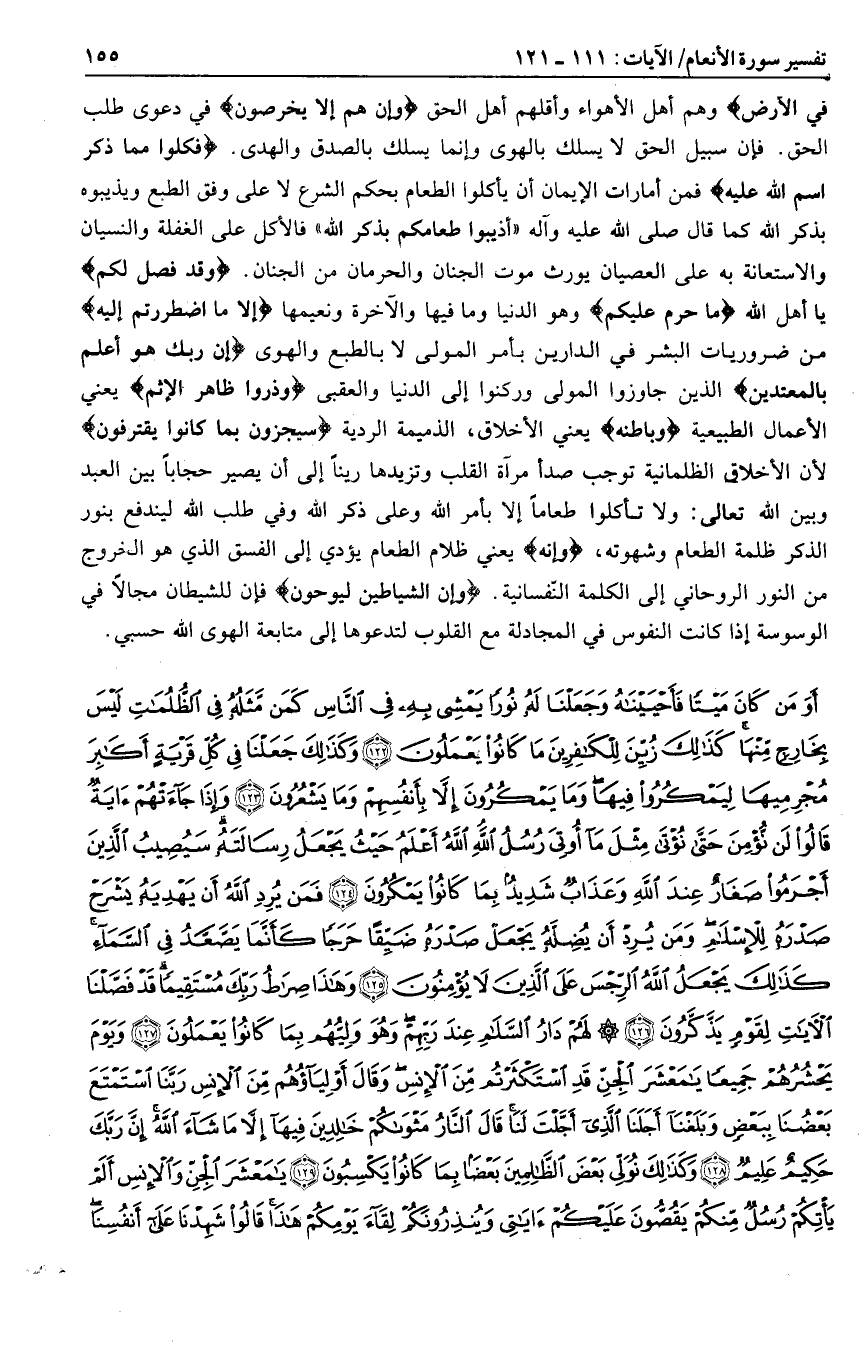 تفسير سورة الأنعام/ الآيات: ١١١ - ١٢١ ١٥٥
في الأرض﴾ وهم أهل الأهواء وأقلهم أهل الحق ﴿وإن هم إلا يخرصون﴾ في دعوى طلب
الحق. فإن سبيل الحق لا يسلك بالهوى وإنما يسلك بالصدق والهدى. ﴿فكلوا مما ذكر
اسم الله عليه﴾ فمن أمارات الإيمان أن يأكلوا الطعام بحكم الشرع لا على وفق الطبع ويذيبوه
بذكر الله كما قال صلى الله عليه وآله «أذيبوا طعامكم بذكر الله» فالأكل على الغفلة والنسيان
والاستعانة به على العصيان يورث موت الجنان والحرمان من الجنان. ﴿وقد فصل لكم﴾
يا أهل الله ﴿ما حرم عليكم﴾ وهو الدنيا وما فيها والآخرة ونعيمها ﴿إلا ما اضطررتم إليه﴾
من ضروريات البشر في الدارين بأمر المولى لا بالطبع والهوى ﴿إن ربك هو أعلم
بالمعتدين﴾ الذين جاوزوا المولى وركنوا إلى الدنيا والعقبى ﴿وذروا ظاهر الإثم﴾ يعني
الأعمال الطبيعية ﴿وباطنه﴾ يعني الأخلاق، الذميمة الردية ﴿سيجزون بما كانوا يقترفون﴾
لأن الأخلاق الظلمانية توجب صدأ مرآة القلب وتزيدها ريناً إلى أن يصير حجاباً بين العبد
وبين الله تعالى: ولا تأكلوا طعاماً إلا بأمر الله وعلى ذكر الله وفي طلب الله ليندفع بنور
الذكر ظلمة الطعام وشهوته، ﴿وإنه﴾ يعني ظلام الطعام يؤدي إلى الفسق الذي هو الخروج
من النور الروحاني إلى الكلمة النّفسانية. ﴿وإن الشياطين ليوحون﴾ فإن للشيطان مجالاً في
الوسوسة إذا كانت النفوس في المجادلة مع القلوب لتدعوها إلى متابعة الهوى الله حسبي.
أَوَ مَن كَانَ مَيْتًا فَأَحْيَيْنَٰهُ وَجَعَلْنَا لَهُۥ نُورًا يَمْشِى بِهِۦ فِى ٱلنَّاسِ كَمَن مَّثَلُهُۥ فِى ٱلظُّلُمَٰتِ لَيْسَ
بِخَارِجٍ مِّنْهَا ۚ كَذَٰلِكَ زُيِّنَ لِلْكَٰفِرِينَ مَا كَانُوا۟ يَعْمَلُونَ ١٢٢ وَكَذَٰلِكَ جَعَلْنَا فِى كُلِّ قَرْيَةٍ أَكَٰبِرَ
مُجْرِمِيهَا لِيَمْكُرُوا۟ فِيهَا ۖ وَمَا يَمْكُرُونَ إِلَّا بِأَنفُسِهِمْ وَمَا يَشْعُرُونَ ١٢٣ وَإِذَا جَآءَتْهُمْ ءَايَةٌ
قَالُوا۟ لَن نُّؤْمِنَ حَتَّىٰ نُؤْتَىٰ مِثْلَ مَآ أُوتِىَ رُسُلُ ٱللَّهِ ۘ ٱللَّهُ أَعْلَمُ حَيْثُ يَجْعَلُ رِسَالَتَهُۥ ۗ سَيُصِيبُ ٱلَّذِينَ
أَجْرَمُوا۟ صَغَارٌ عِندَ ٱللَّهِ وَعَذَابٌ شَدِيدٌۢ بِمَا كَانُوا۟ يَمْكُرُونَ ١٢٤ فَمَن يُرِدِ ٱللَّهُ أَن يَهْدِيَهُۥ يَشْرَحْ
صَدْرَهُۥ لِلْإِسْلَٰمِ ۖ وَمَن يُرِدْ أَن يُضِلَّهُۥ يَجْعَلْ صَدْرَهُۥ ضَيِّقًا حَرَجًا كَأَنَّمَا يَصَّعَّدُ فِى ٱلسَّمَآءِ ۚ
كَذَٰلِكَ يَجْعَلُ ٱللَّهُ ٱلرِّجْسَ عَلَى ٱلَّذِينَ لَا يُؤْمِنُونَ ١٢٥ وَهَٰذَا صِرَٰطُ رَبِّكَ مُسْتَقِيمًا ۗ قَدْ فَصَّلْنَا
ٱلْءَايَٰتِ لِقَوْمٍ يَذَّكَّرُونَ ١٢٦ ۞ لَهُمْ دَارُ ٱلسَّلَٰمِ عِندَ رَبِّهِمْ ۖ وَهُوَ وَلِيُّهُم بِمَا كَانُوا۟ يَعْمَلُونَ ١٢٧ وَيَوْمَ
يَحْشُرُهُمْ جَمِيعًا يَٰمَعْشَرَ ٱلْجِنِّ قَدِ ٱسْتَكْثَرْتُم مِّنَ ٱلْإِنسِ ۖ وَقَالَ أَوْلِيَآؤُهُم مِّنَ ٱلْإِنسِ رَبَّنَا ٱسْتَمْتَعَ
بَعْضُنَا بِبَعْضٍ وَبَلَغْنَآ أَجَلَنَا ٱلَّذِىٓ أَجَّلْتَ لَنَا ۚ قَالَ ٱلنَّارُ مَثْوَىٰكُمْ خَٰلِدِينَ فِيهَآ إِلَّا مَا شَآءَ ٱللَّهُ ۗ إِنَّ رَبَّكَ
حَكِيمٌ عَلِيمٌ ١٢٨ وَكَذَٰلِكَ نُوَلِّى بَعْضَ ٱلظَّٰلِمِينَ بَعْضًۢا بِمَا كَانُوا۟ يَكْسِبُونَ ١٢٩ يَٰمَعْشَرَ ٱلْجِنِّ وَٱلْإِنسِ أَلَمْ
يَأْتِكُمْ رُسُلٌ مِّنكُمْ يَقُصُّونَ عَلَيْكُمْ ءَايَٰتِى وَيُنذِرُونَكُمْ لِقَآءَ يَوْمِكُمْ هَٰذَا ۚ قَالُوا۟ شَهِدْنَا عَلَىٰٓ أَنفُسِنَا ۖ